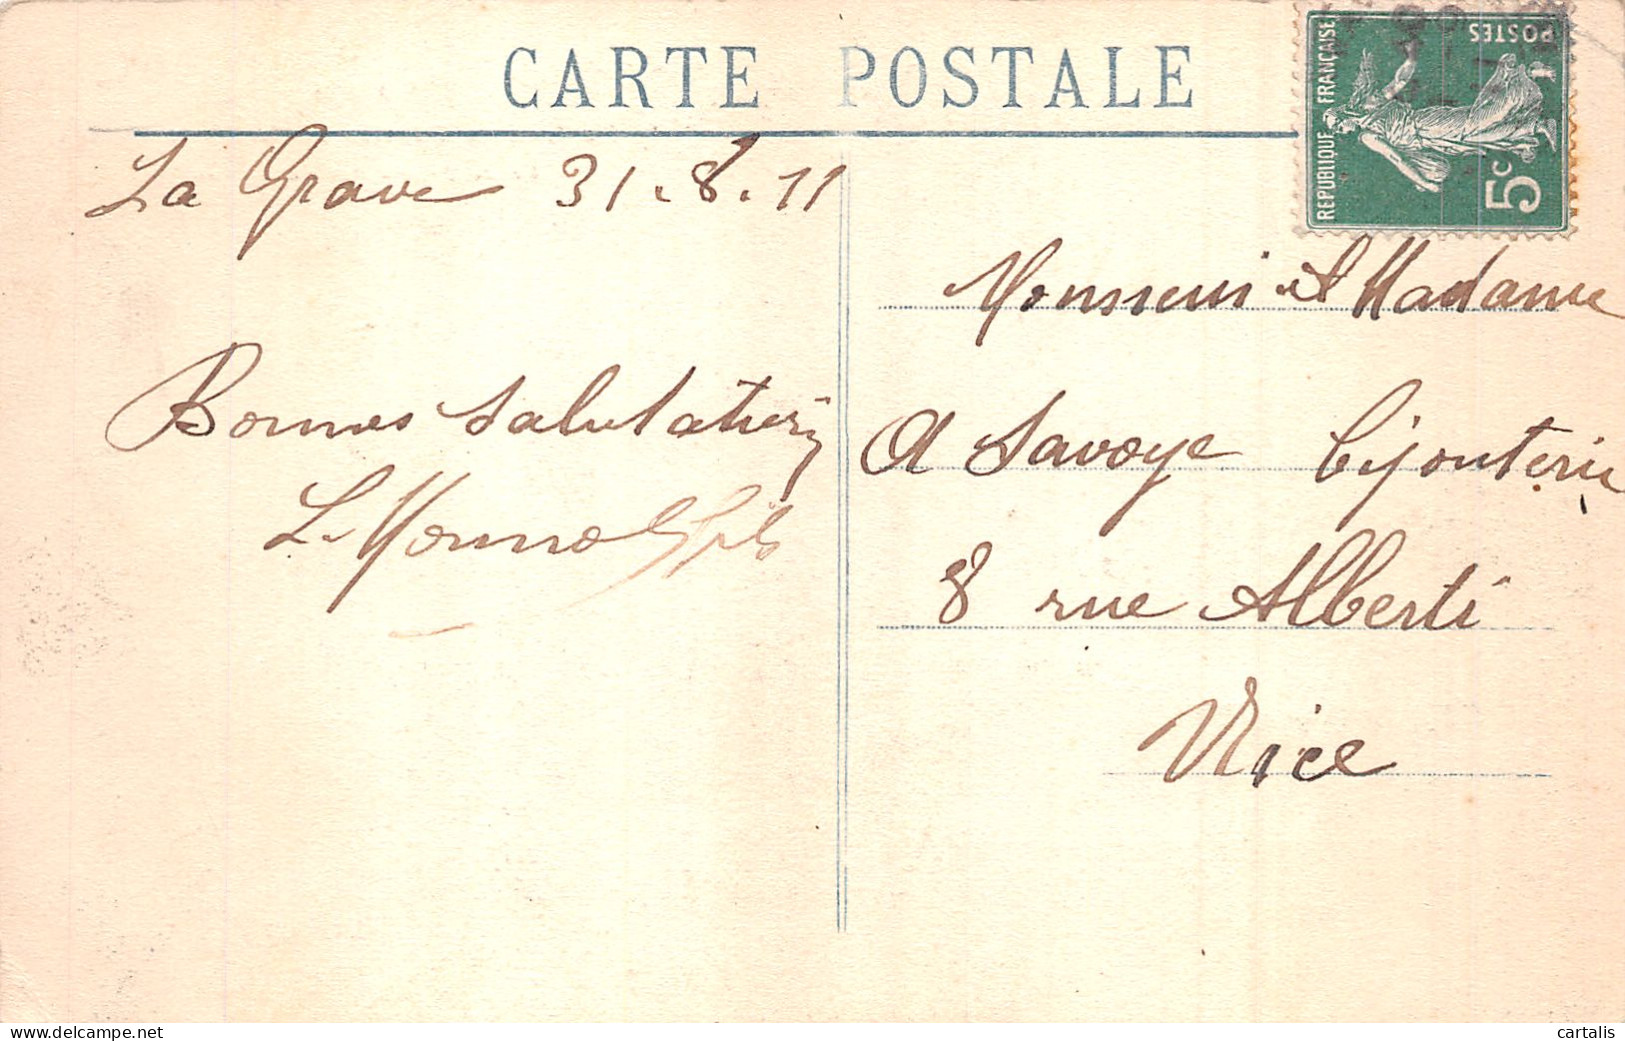 CARTE POSTALE
RÉPUBLIQUE FRANÇAISE
POSTES
5c
La Grave 31.8.11
Bonnes Salutations
L.
Monsieur et Madame
A Savoye bijouterie
8 rue Alberti
Nice
cartalis